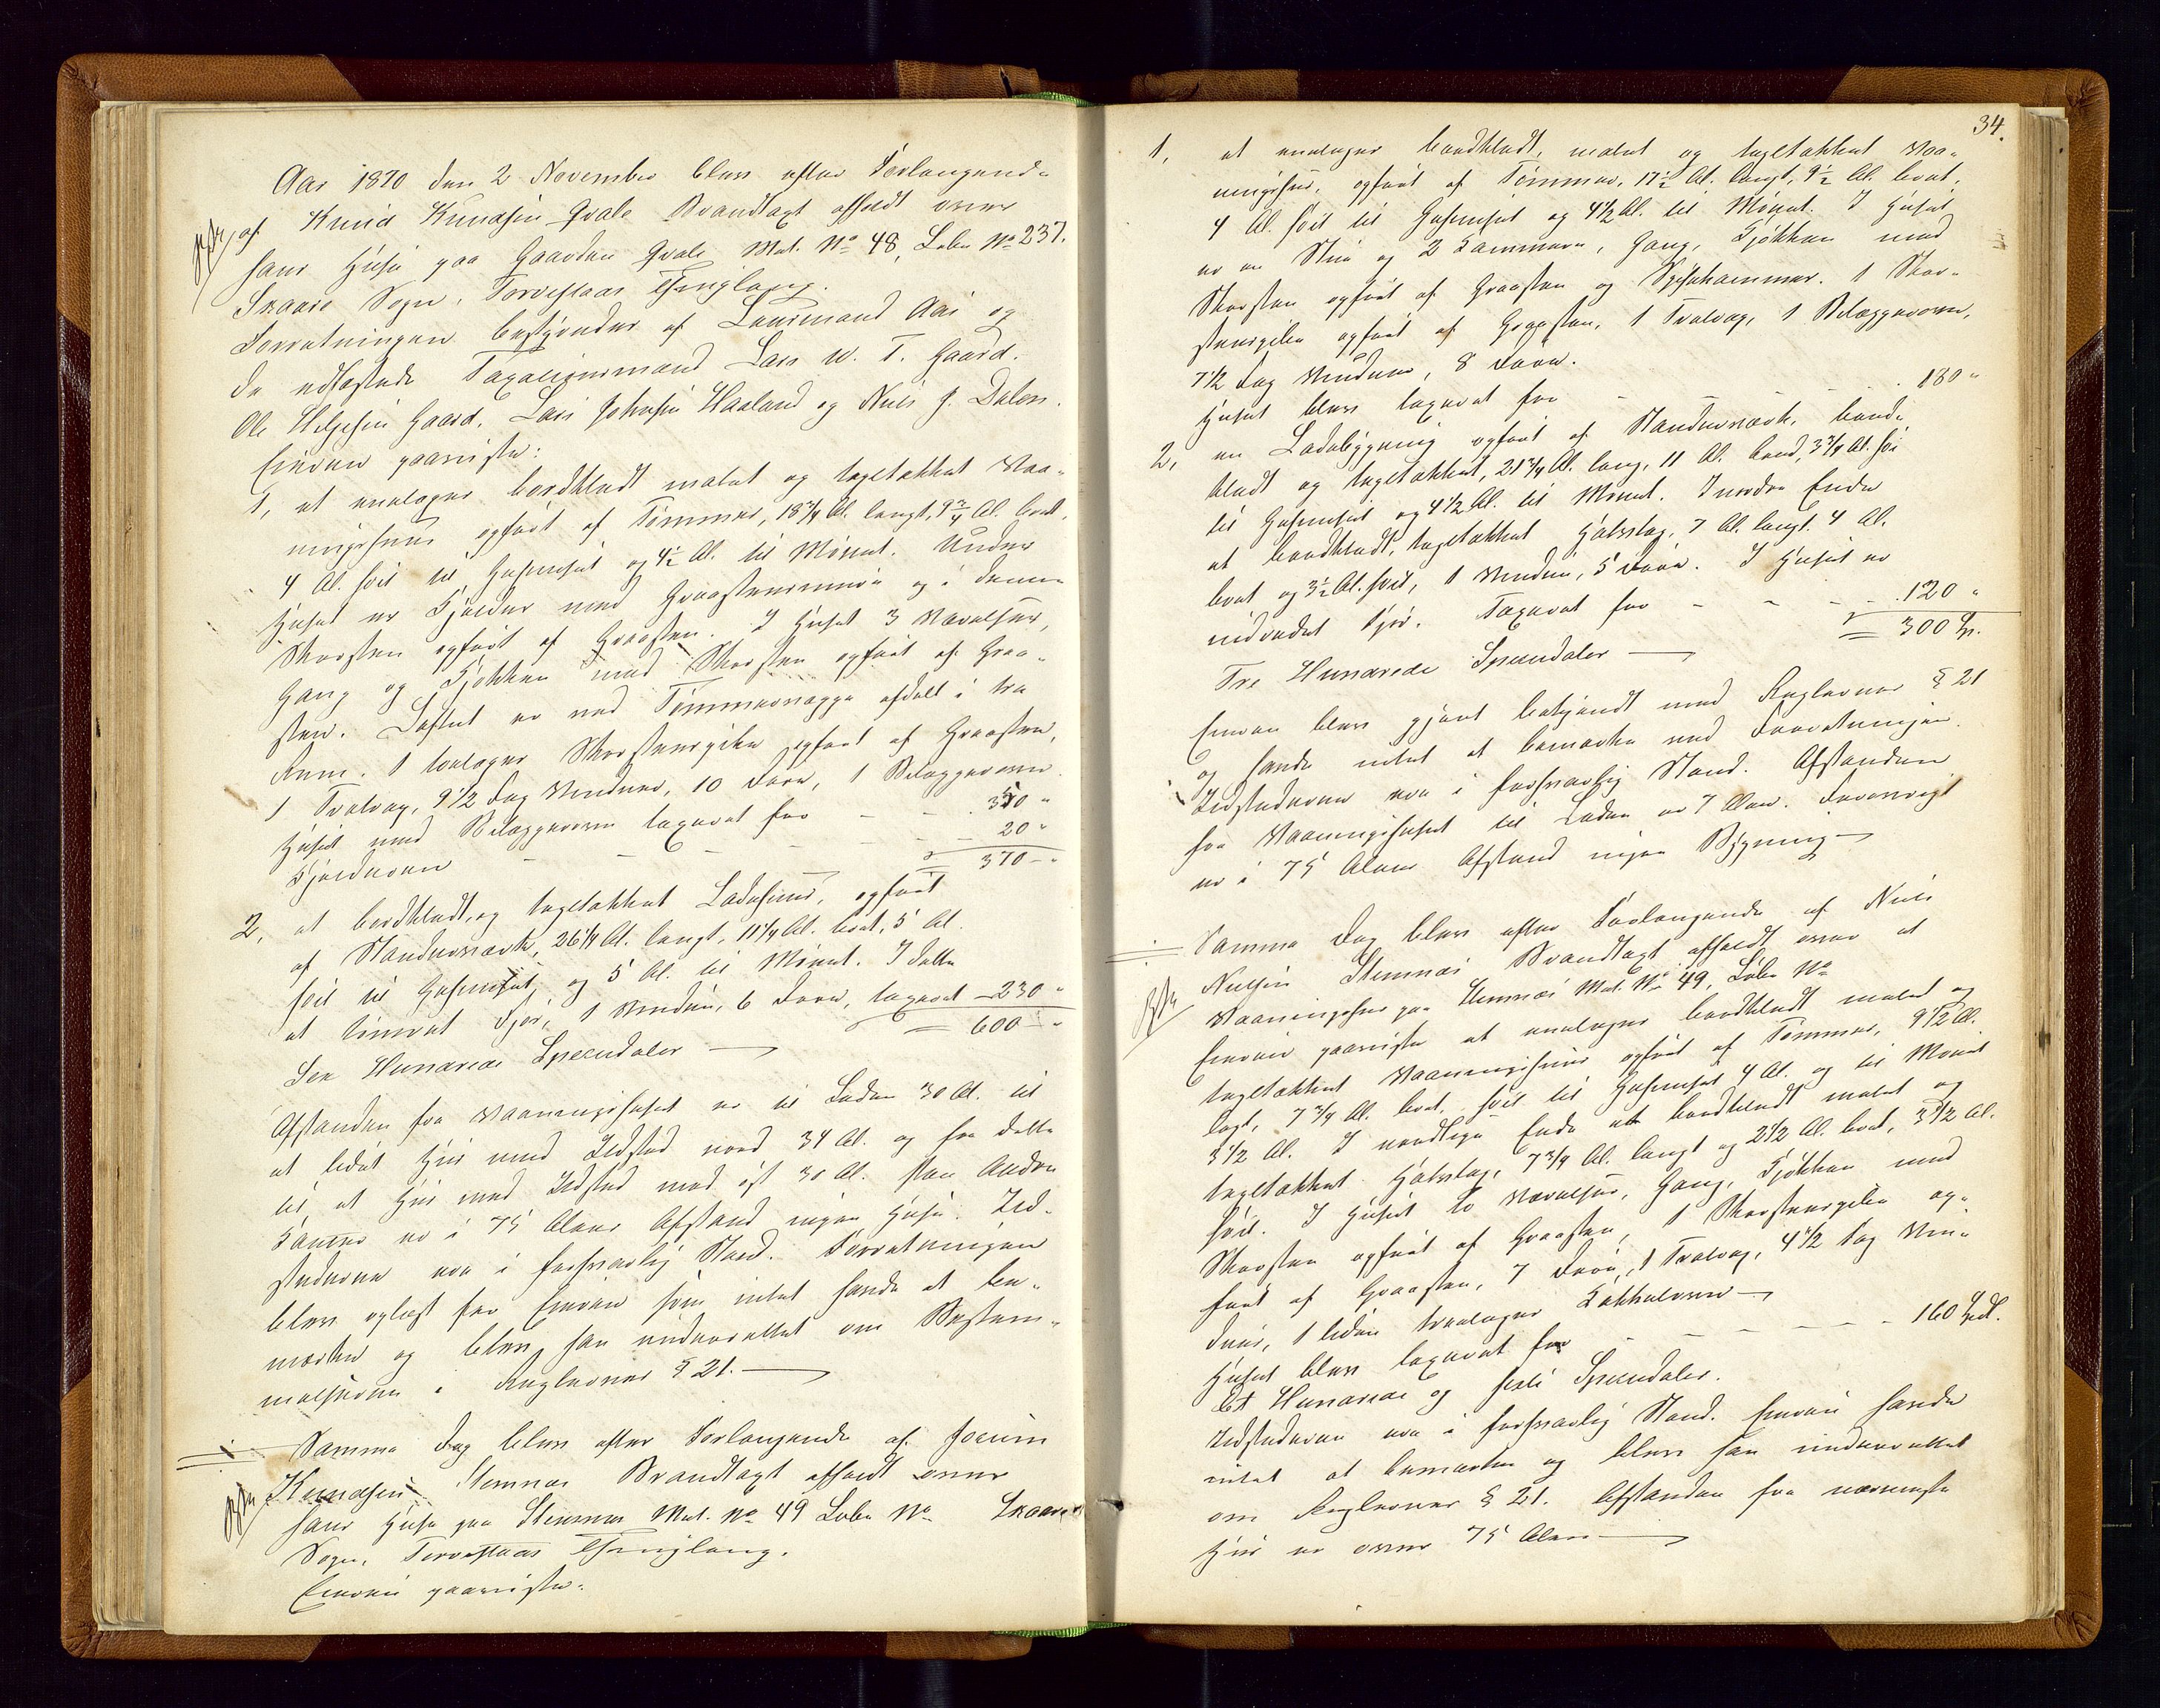 Aar 1870 den 2 November blev efter Forlangende
af Knud Knudsen Qvale Brandtaxt afholdt over
hans Huse paa Gaarden Qvale Mat. No 48, Løbe No 237.
Skaare Sogn, Torvestads Thinglaug.
Forretningen bestyredes af Lensmand Aai og
de udtagede Taxationsmænd Lars W. T. Gaard.
Ole Helgesen Gaard, Lars Johnsen Haaland og Nils J. Dalen.
Eieren paaviste:
1, et enetages bordklædt malet og tegltækket Vaa-
ningshuus opført af Tømmer, 18 3/4 Al. langt, 9 3/4 Al. bredt,
4 Al. høit til Gesimset og 4 1/2 Al. til Mønet. Under
Huset er Kjælder med Graastensmure og i denne
Skorsten opført af Graasten. I Huset 3 Værelser,
Gang og Kjøkken med Skorsten opført af Graa-
sten. Loftet er med Tømmervægge afdelt i tre
Rum. 1 toetages Skorstenspibe opført af Graasten,
1 Trætrap, 9 1/2 Fag Vinduer, 10 Døre, 1 Bilæggerovn.
Huset med Bilæggerovn taxeret for - - 350 "
Kjælderen - - - - - 20 "
= 370 - "
2, et bordklædt og tegltækket Ladehuus, opført
af Standerværk, 26 1/4 Al. langt, 11 1/4 Al. bredt, 5 Al.
høit til Gesimset og 5 Al. til Mønet. I dette
et tømret Fjøs, 1 Vindue, 6 Døre, taxeret - 230 "
= 600 - "
Sex Hundrede Speciedaler
Afstanden fra Vaaningshuset er til Laden 30 Al. til
et lidet Huus med Ildsted nord 34 Al. og fra dette
til et Huus med Ildsted mod øst 30 Al. Paa Andre
Kanter er i 75 Alens Afstand ingen Huse. Ild-
stederne ere i forsvarlig Stand. Forretningen
blev oplæst for Eieren som intet havde at be-
mærke og blev han underrettet om Bestem-
melserne i Reglernes § 21.
Samme Dag blev efter Forlangende af
Knudsen Stemnæs Brandtaxt afholdt over
hans Huse paa Stemnæs Mat. No 49 Løbe No Skaare
Sogn, Torvestads Thinglaug.
Eieren paaviste:
34.
1, et enetages bordklædt, malet og tegltækket Vaa-
ningshus, opført af Tømmer, 17 1/2 Al. langt, 9 1/2 Al. bredt,
4 Al. høit til Gesimset og 4 1/2 Al. til Mønet. I Huset
er en Stue og 2 Kammere, Gang, Kjøkken med
Skorsten opført af Graasten og Spisekammer. 1 Skor-
stenspibe opført af Graasten, 1 Trætrap, 1 Bilæggerovn,
7 1/2 Fag Vinduer, 8 Døre.
Huset blev taxeret for - - - 180 "
2, en Ladebygning opført af Standerværk, bord-
klædt og tegltækket, 21 3/4 Al. lang, 11 Al. bred, 3 3/4 Al. høi
til Gesimset og 4 1/2 Al. til Mønet. I nordre Ende
et bordklædt, tegltækket Halvtag, 7 Al. langt, 4 Al.
bredt og 3 1/2 Al. høit, 1 Vindue, 5 Døre. I Huset er
indredet Fjøs. Taxeret for - - - 120 "
= 300 Sp.
Tre Hundrede Speciedaler
Eieren blev gjort bekjendt med Reglernes § 21
og havde intet at bemærke ved Forretningen.
Ildstederne ere i forsvarlig Stand. Afstanden
fra Vaaningshuset til Laden er 7 Alen. Forøvrigt
er i 75 Alens Afstand ingen Bygning
Samme Dag blev efter Forlangende af Nils
Nilsen Stemnæs Brandtaxt afholdt over et
Vaaningshus paa Stemnæs Mat. No 49, Løbe No
Eieren paaviste et enetages bordklædt malet og
tegltækket Vaaningshuus opført af Tømmer, 9 1/2 Al.
langt, 7 3/4 Al. bredt, høit til Gesimset 4 Al. og til Mønet
3 1/2 Al. I nordlige Ende et bordklædt malet og
tegltækket Halvtag, 7 3/4 Al. langt og 2 1/2 Al. bredt, 3 1/2 Al.
høit. I Huset to Værelser, Gang, Kjøkken med
Skorsten opført af Graasten, 1 Skorstenspibe op-
ført af Graasten, 7 Døre, 1 Trætrap, 4 1/2 Fag Vin-
duer, 1 liden treetages Kakkelovn
Huset blev taxeret for - - - - 160 Spd.
Et Hundrede og sexti Speciedaler.
Ildstederne ere i forsvarlig Stand. Eieren havde
intet at bemærke og blev han underrettet
om Reglernes § 21. Afstanden fra nærmeste
Huus er over 75 Alen